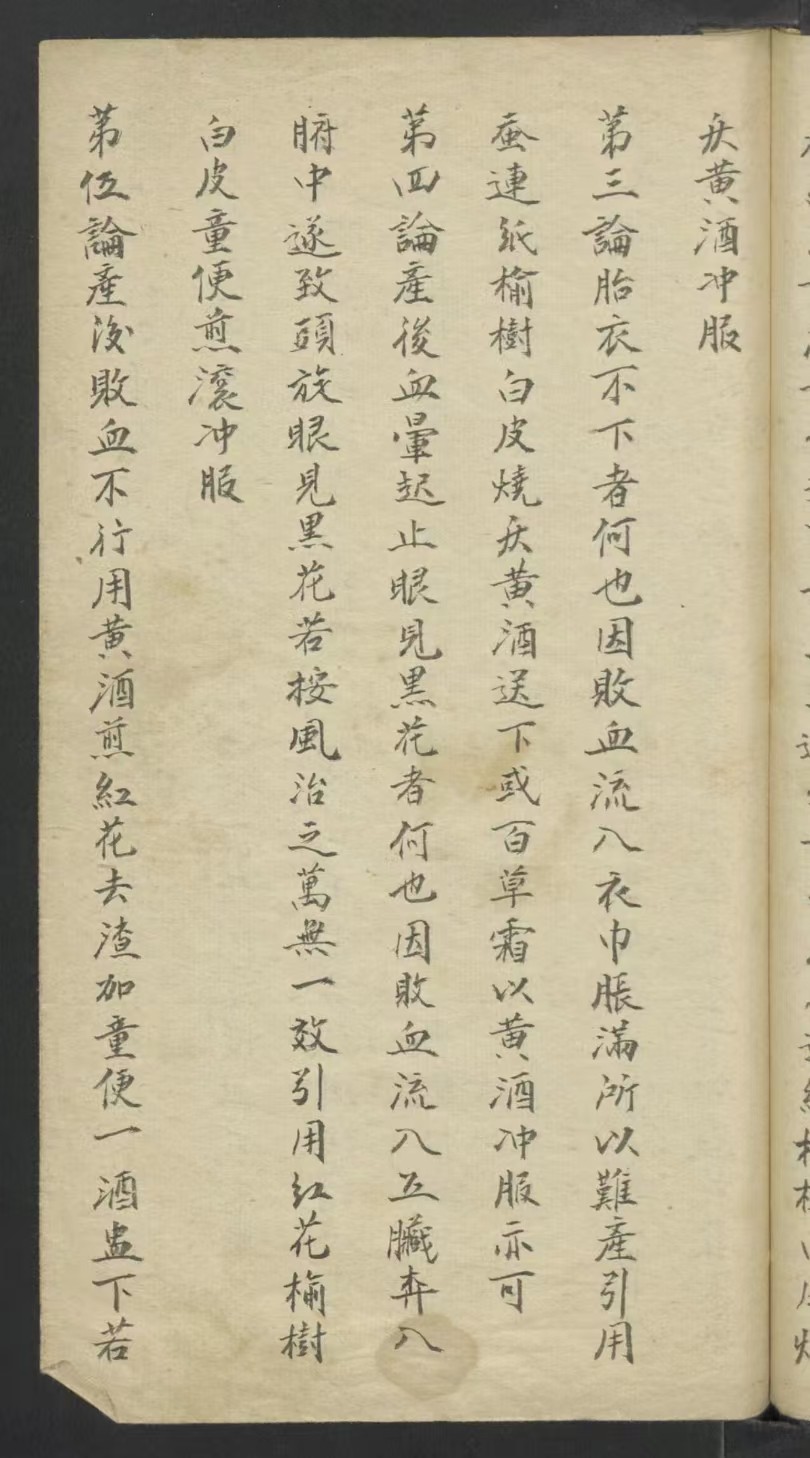 灰黄酒冲服
第三論胎衣不下者何也因敗血流入衣巾脹滿所以難產引用
蚕連紙榆樹白皮燒灰黄酒送下或百草霜以黄酒冲服亦可
第四論產後血暈起止眼見黑花者何也因敗血流入五臟奔入
腑中遂致頭旋眼見黑花若按風治之萬無一效引用紅花榆樹
白皮童便煎滾冲服
第伍論產後敗血不行用黄酒煎紅花去渣加童便一酒盅下若